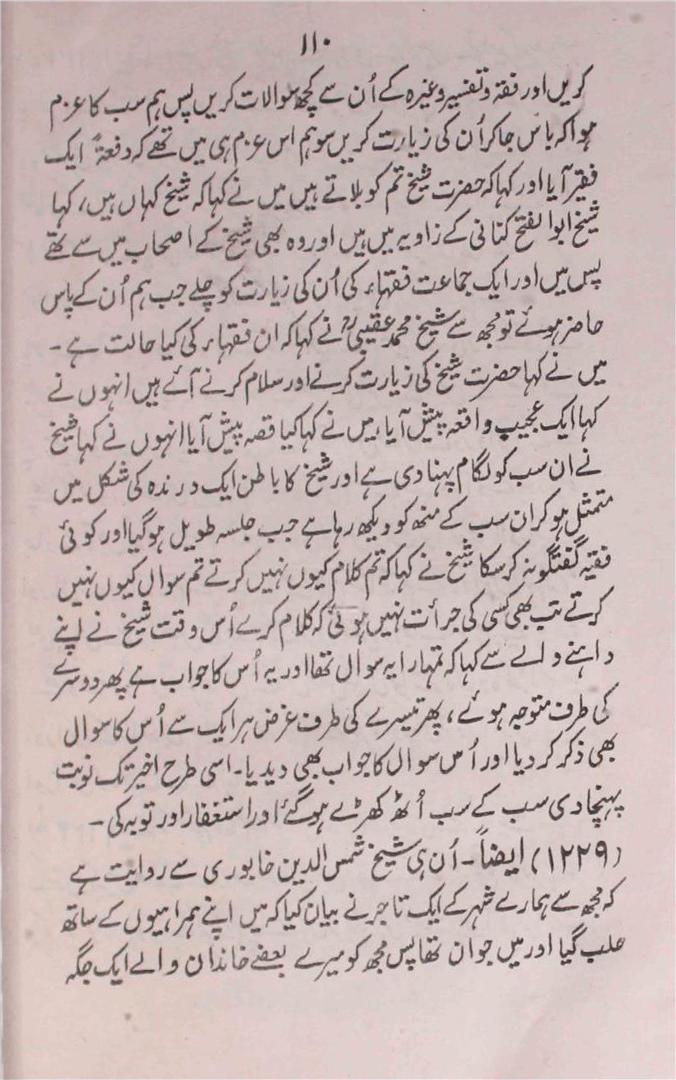 ۱۱۰
کریں اور فقہ و تفسیر وغیرہ کے اُن سے کچھ سوالات کریں پس ہم سب کا عزم
ہوا کہ پاس جاکر اُن کی زیارت کریں سو ہم اس عزم ہی میں تھے کہ دفعۃً ایک
فقیر آیا اور کہا کہ حضرت شیخ تم کو بلاتے ہیں میں نے کہا کہ شیخ کہاں ہیں، کہا
شیخ ابوالفتح کنانی کے زاویہ میں ہیں اور وہ بھی شیخ کے اصحاب میں سے تھے
پس میں اور ایک جماعت فقہاء کی اُن کی زیارت کو چلے جب ہم اُن کے پاس
حاضر ہوئے تو مجھ سے شیخ محمد عقیبیؒ نے کہا کہ ان فقہاء کی کیا حالت ہے ۔
میں نے کہا حضرت شیخ کی زیارت کرنے اور سلام کرنے آئے ہیں انہوں نے
کہا ایک عجیب واقعہ پیش آیا، میں نے کہا کیا قصہ پیش آیا انہوں نے کہا شیخ
نے ان سب کو لگام پہنا دی ہے اور شیخ کا باطن ایک درندہ کی شکل میں
متمثل ہو کر ان سب کے منھ کو دیکھ رہا ہے جب جلسہ طویل ہو گیا اور کوئی
فقیہ گفتگو نہ کر سکا شیخ نے کہا کہ تم کلام کیوں نہیں کرتے تم سوال کیوں نہیں
کرتے تب بھی کسی کی جرأت نہیں ہوئی کہ کلام کرے اُس وقت شیخ نے اپنے
داہنے والے سے کہا کہ تمہارا یہ سوال تھا اور یہ اُس کا جواب ہے پھر دوسرے
کی طرف متوجہ ہوئے، پھر تیسرے کی طرف غرض ہر ایک سے اُس کا سوال
بھی ذکر کر دیا اور اُس سوال کا جواب بھی دیدیا۔ اسی طرح اخیر تک نوبت
پہنچا دی سب کے سب اُٹھ کھڑے ہو گئے اور استغفار اور توبہ کی ۔
(۱۲۲۹) ایضاً ۔ اُن ہی شیخ شمس الدین خابوری سے روایت ہے
کہ مجھ سے ہمارے شہر کے ایک تاجر نے بیان کیا کہ میں اپنے ہمراہیوں کے ساتھ
حلب گیا اور میں جوان تھا پس مجھ کو میرے بعضے خاندان والے ایک جگہ